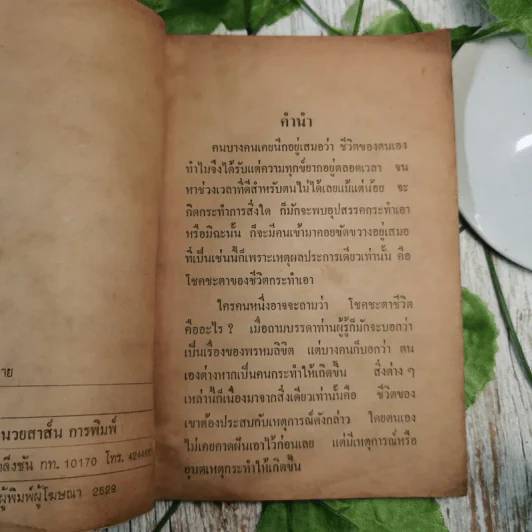 าย
นวยสาส์น การพิมพ์
ลิ่งชัน กท. 10170 โทร.
ผู้พิมพ์ผู้โฆษณา 2528
คำนำ
คนบางคนเคยนึกอยู่เสมอว่า ชีวิตของตนเอง
ทำไมจึงได้รับแต่ความทุกข์ยากอยู่ตลอดเวลา จน
หาช่วงเวลาที่ดีสำหรับตนไม่ได้เลยแม้แต่น้อย จะ
คิดกระทำการสิ่งใด ก็มักจะพบอุปสรรคกระทำเอา
หรือมิฉะนั้น ก็จะมีคนเข้ามาคอยขัดขวางอยู่เสมอ
ที่เป็นเช่นนี้ก็เพราะเหตุผลประการเดียวเท่านั้น คือ
โชคชะตาของชีวิตกระทำเอา
ใครคนหนึ่งอาจจะถามว่า โชคชะตาชีวิต
คืออะไร ? เมื่อถามบรรดาท่านผู้รู้ก็มักจะบอกว่า
เป็นเรื่องของพรหมลิขิต แต่บางคนก็บอกว่า ตน
เองต่างหากเป็นคนกระทำให้เกิดขึ้น สิ่งต่าง ๆ
เหล่านี้ก็เนื่องมาจากสิ่งเดียวเท่านั้นคือ ชีวิตของ
เขาต้องประสบกับเหตุการณ์ดังกล่าว โดยตนเอง
ไม่เคยคาดฝันเอาไว้ก่อนเลย แต่มีเหตุการณ์หรือ
อุบตเหตุกระทำให้เกิดขึ้น